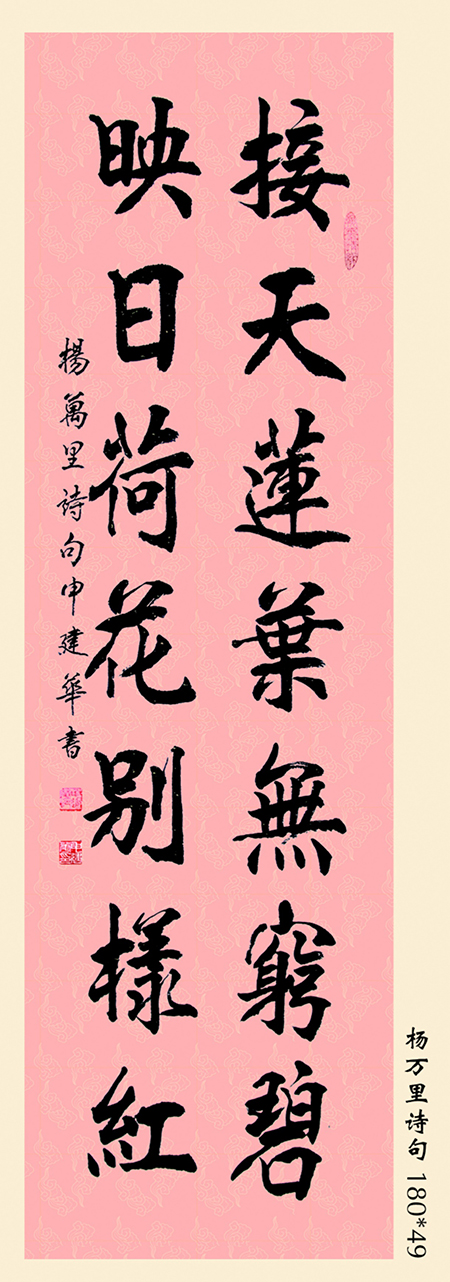 接天蓮葉無窮碧
映日荷花别樣紅
楊萬里詩句申建華書
杨万里诗句 180*49